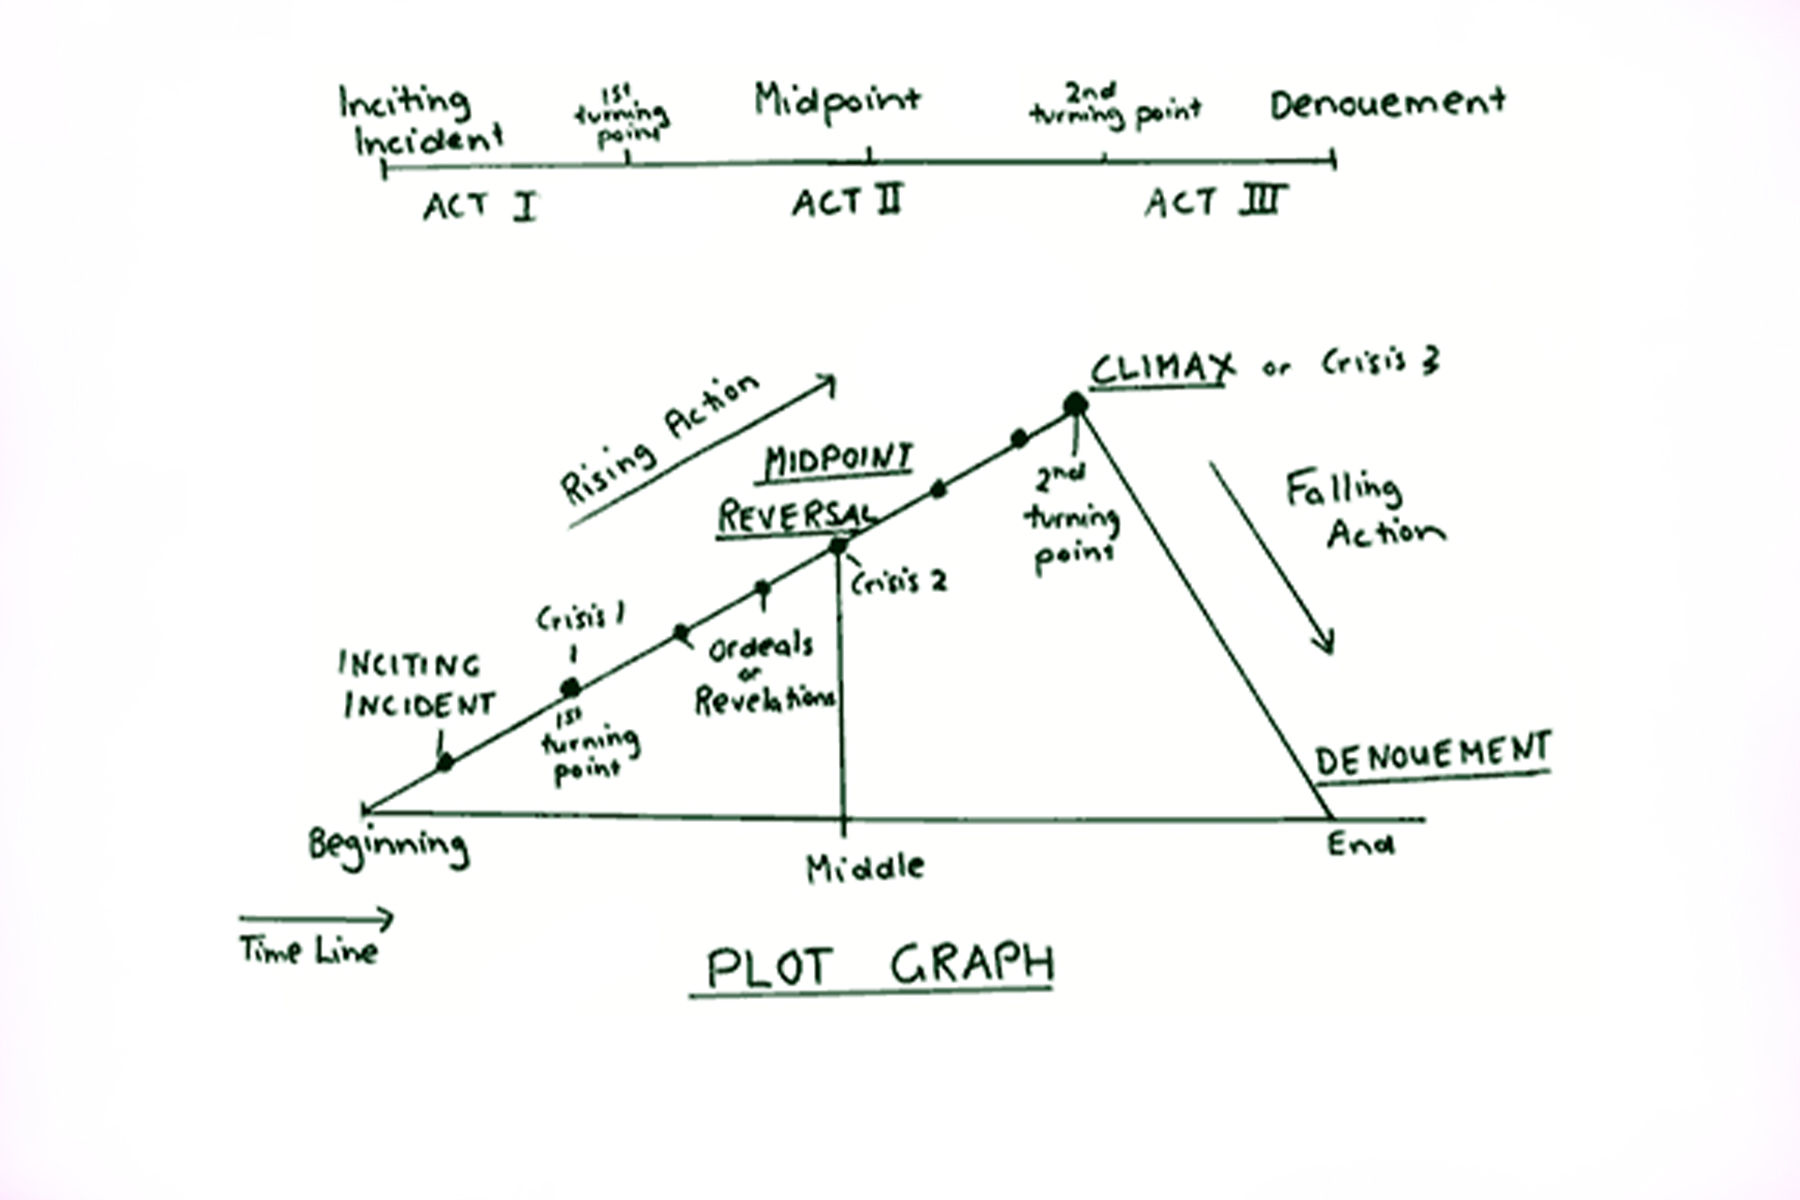 Inciting
Incident
1st
turning
point
Midpoint
2nd
turning point
Denouement
ACT I
ACT II
ACT III
Rising Action
CLIMAX or Crisis 3
MIDPOINT
REVERSAL
2nd
turning
point
Falling
Action
Crisis 2
Crisis 1
Ordeals
or
Revelations
INCITING
INCIDENT
1st
turning
point
DENOUEMENT
Beginning
Middle
End
Time Line
PLOT GRAPH